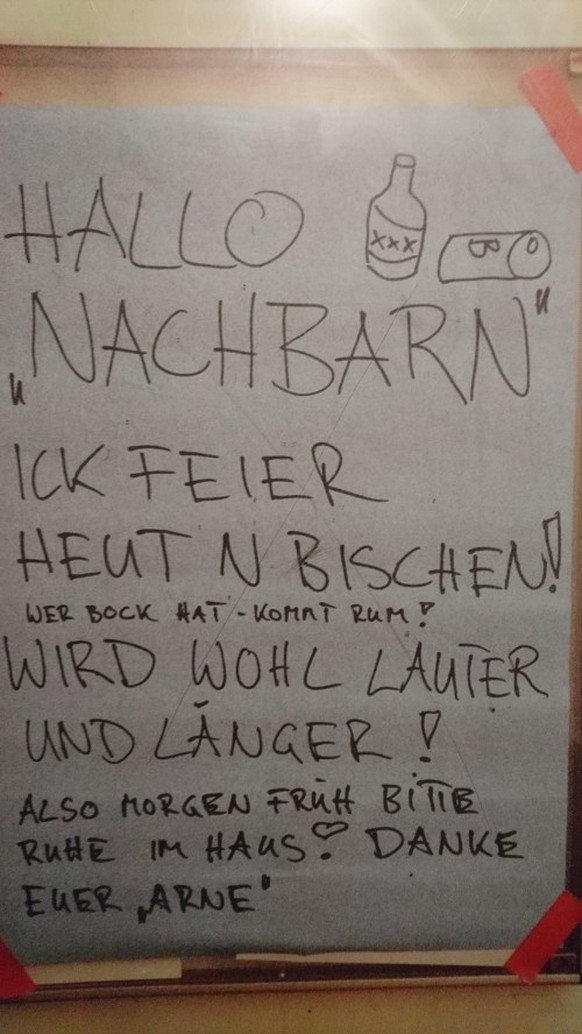 HALLO
XXX
„NACHBARN"
ICK FEIER
HEUT N BISCHEN!
WER BOCK HAT - KOMMT RUM!
WIRD WOHL LAUTER
UND LÄNGER!
ALSO MORGEN FRÜH BITTE
RUHE IM HAUS! DANKE
EUER „ARNE"